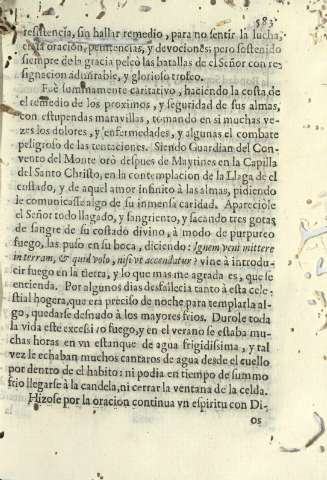 583
resistencia, sin hallar remedio, para no sentir la lucha,
oracion, penitencias, y devociones; pero sostenido
siempre de la gracia peleò las batallas de el Señor con re-
signacion admirable, y glorioso trofeo.
Fuè sumamente caritativo, haciendo la costa de
el remedio de los proximos, y seguridad de sus almas,
con estupendas maravillas, tomando en si muchas ve-
zes los dolores, y enfermedades, y algunas el combate
peligroso de las tentaciones. Siendo Guardian del Con-
vento del Monte orò despues de Maytines en la Capilla
del Santo Christo, en la contemplacion de la Llaga de el
costado, y de aquel amor infinito à las almas, pidiendo
le comunicasse algo de su inmensa caridad. Apareciòle
el Señor todo llagado, y sangriento, y sacando tres gotas
de sangre de su costado divino, à modo de purpureo
fuego, las puso en su boca, diciendo: Ignem veni mittere
in terram, & quid volo, nisi vt accendatur? vine à introdu-
cir fuego en la tierra, y lo que mas me agrada es, que se
encienda. Por algunos dias desfallecia tanto à esta cele-
stial hogera, que era preciso de noche, para templarla al-
go, quedarse desnudo à los mayores frios. Durole toda
la vida este excessivo fuego, y en el verano se estaba mu-
chas horas en vn estanque de agua frigidissima, y tal
vez le echaban muchos cantaros de agua desde el cuello
por dentro de el habito: ni podia en tiempo de summo
frio llegarse à la candela, ni cerrar la ventana de la celda.
Hizose por la oracion continua vn espiritu con Di-
os